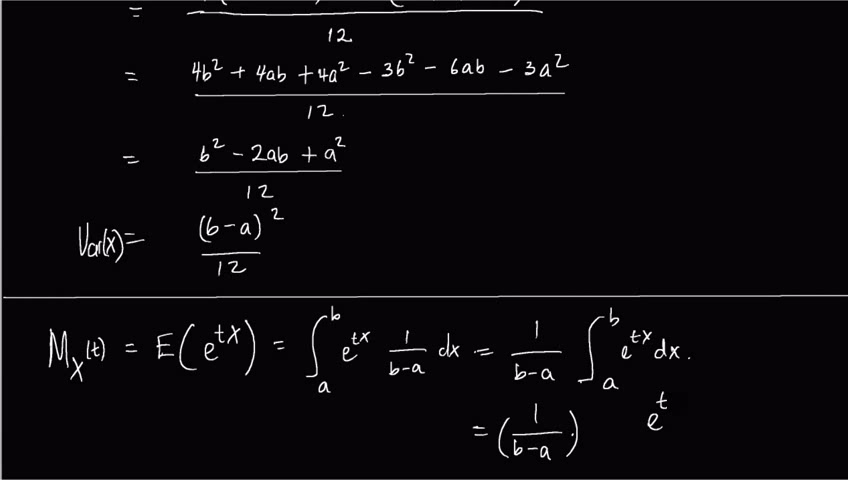 = 12
= 4b² + 4ab + 4a² - 3b² - 6ab - 3a² / 12.
= b² - 2ab + a² / 12
Var(x) = (b-a)² / 12
M_X(t) = E(e^{tx}) = ∫_a^b e^{tx} 1/(b-a) dx = 1/(b-a) ∫_a^b e^{tx} dx.
= (1/(b-a)). e^t